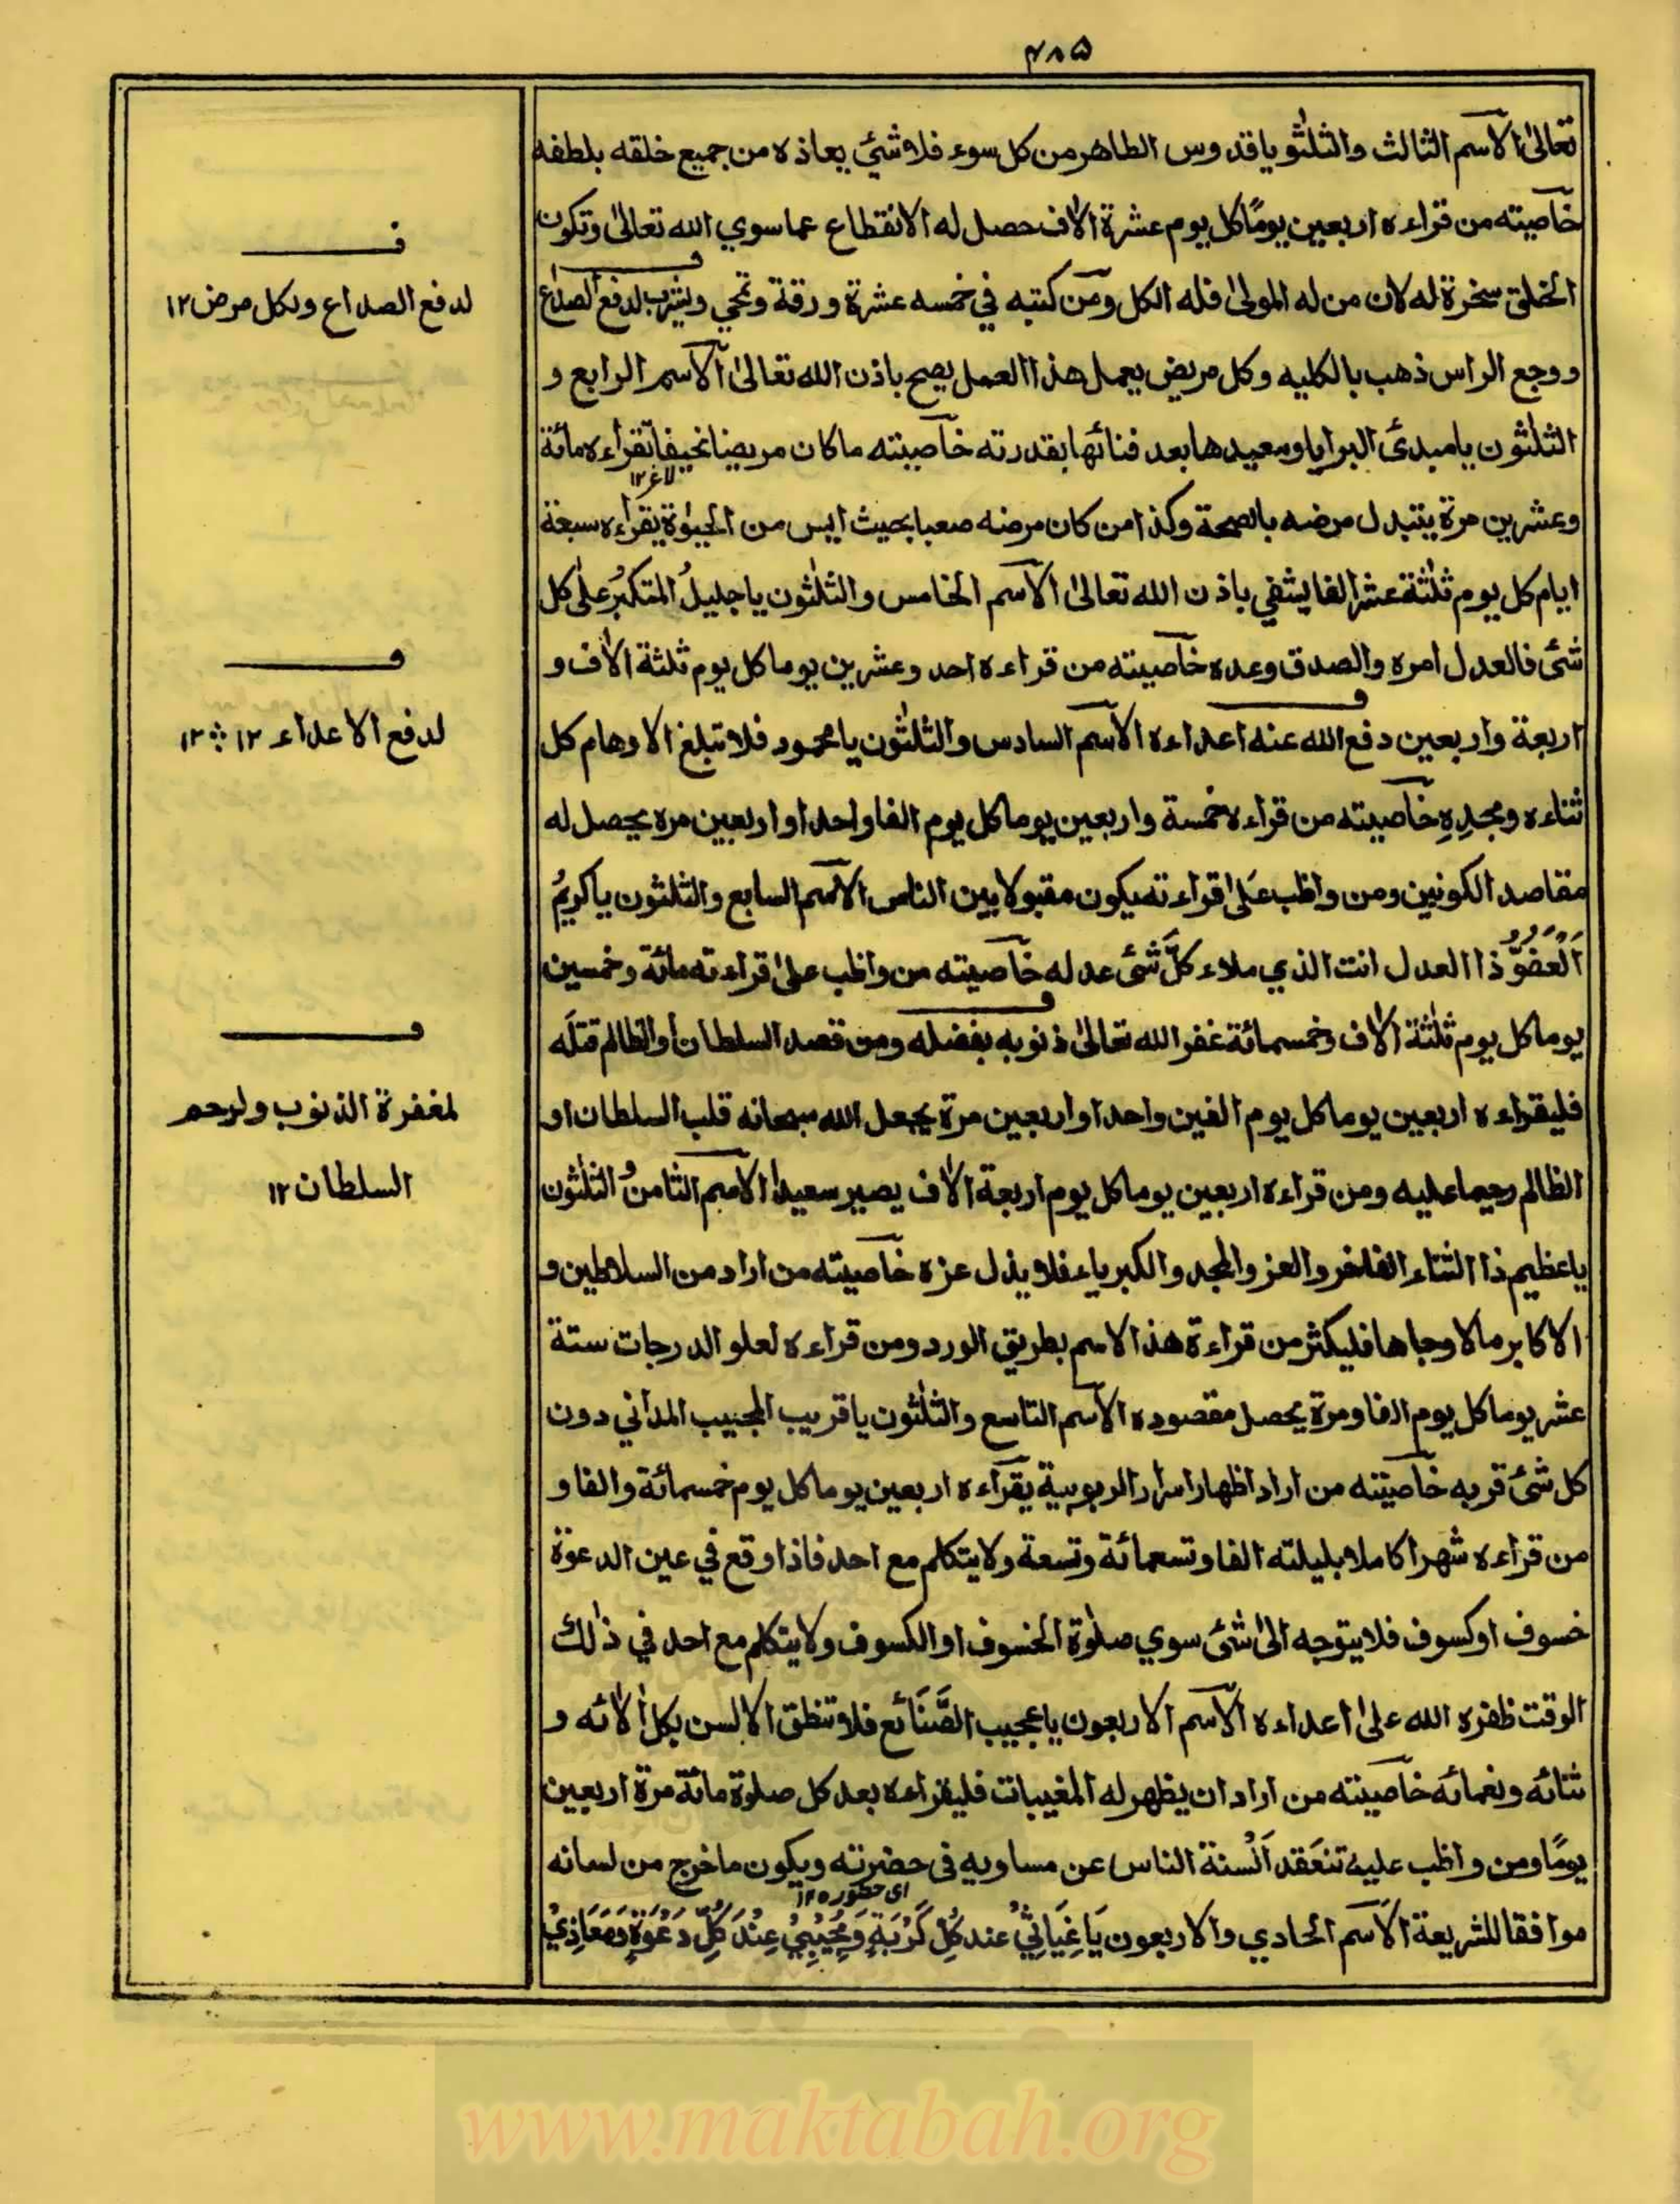 ۴۸۵
تعالیٰ الآسم الثالث والثلثو یاقدوس الطاهرمن کل سوء فلا شیٔ یعاذہ من جمیع خلقه بلطفه
خآصیته من قراءہ اربعین یومًا کل یوم عشرة الٰاف حصل له الانقطاع عما سوي الله تعالیٰ وتکون
الخلق سخرة له لان من له المولیٰ فله الکل ومن کتبه في خمسه عشرة ورقة وتمحي ویشرب لدفع الصداع
ووجع الراس ذهب بالکلیه وکل مریض یعمل هذا العمل یصح باذن الله تعالیٰ الآسم الرابع و
الثلثون یامبدئ البرایا ومعیدها بعد فنائها بقدرته خآصیته ماکان مریضا نحیفا تقراءہ مائة
لاغر١٢
وعشرین مرة یتبدل مرضه بالصحة وکذا من کان مرضه صعبا بحیث ایس من الحیٰوة یقراءہ سبعة
ایام کل یوم ثلٰثة عشر الفا یشفي باذن الله تعالیٰ الآسم الخامس والثلٰثون یاجلیلُ المتکبرُ علٰی کل
شیٔ فالعدل امرہ والصدق وعدہ خآصیته من قراءہ احد وعشرین یوما کل یوم ثلثة الٰاف و
اربعة واربعین دفع الله عنه اعداءہ الآسم السادس والثلٰثون یامحمود فلا تبلغ الاوهام کل
ثناءہ ومجدِہِ خآصیته من قراءہ خمسة واربعین یوما کل یوم الفا واحدا واربعین مرہ یحصل له
مقاصد الکونین ومن واظب عَلیٰ قراءته یکون مقبولا بین الناس الآسم السابع والثلثون یاکریمُ
اَلْعَفُوُّ ذا العدل انت الذي ملاء کلَّ شیٔ عدله خآصیته من واظب علیٰ قراءته مائة وخمسین
یوما کل یوم ثلٰثة الٰاف وخمسمائة غفر الله تعالیٰ ذنوبه بفضله ومن قصد السلطان أوالظالم قتلَه
فلیقراءہ اربعین یوما کل یوم الفین واحدا واربعین مرة یجعل الله سبحانه قلب السلطان او
الظالم رحیما علیه ومن قراءہ اربعین یوما کل یوم اربعة الٰاف یصیر سعیدا الآسم الثامنُ و الثلٰثون
یاعظیم ذا الثناء الفاخر والعز والمجد والکبریاء فلا یذل عزہ خآصیته من اراد من السلاطین و
الاکابر مالا وجاها فلیکثر من قراءة هذا الاسم بطریق الورد ومن قراءہ لعلو الدرجات ستة
عشر یوما کل یوم الفا ومرة یحصل مقصودہ الآسم التاسع والثلٰثون یاقریب المجیب المداني دون
کل شیٔ قربه خآصیته من اراد اظهار اسرار الربوبیة یقراءہ اربعین یوما کل یوم خمسمائة والفا و
من قراءہ شهرا کاملا بلیلته الفا وتسعمائة وتسعة ولا یتکلم مع احد فاذا وقع في عین الدعوة
خسوف او کسوف فلا یتوجه الیٰ شیٔ سوي صلوٰة الخسوف او الکسوف ولا یتکلم مع احد في ذٰلك
الوقت ظفرہ الله علیٰ اعداءہ الآسم الاربعون یاعجیب الصَّنَائع فلا تنطق الالسن بکل اٰلائه و
ثنائه ونعمائه خآصیته من اراد ان یظهر له المغیبات فلیقراءہ بعد کل صلوة مائة مرة اربعین
یومًا ومن واظب علیه تنعَقد اَلْسنة الناس عن مساویه فی حضرته ویکون ماخرج من لسانه
ای حضور١٢
موافقا للشریعة الآسم الحادي والاربعون یَاغِیَاثِيْ عند کُلِّ کَرْبَةٍ وَمُجِیْبِيْ عِنْدَ کُلِّ دَعْوَةٍ وَمَعَاذِيْ
ف
لدفع الصداع ولکل مرض ١٢
ف
لدفع الاعداء ١٢ ۞ ١٢
ف
لمغفرة الذنوب ولرحم
السلطان ١٢
www.maktabah.org